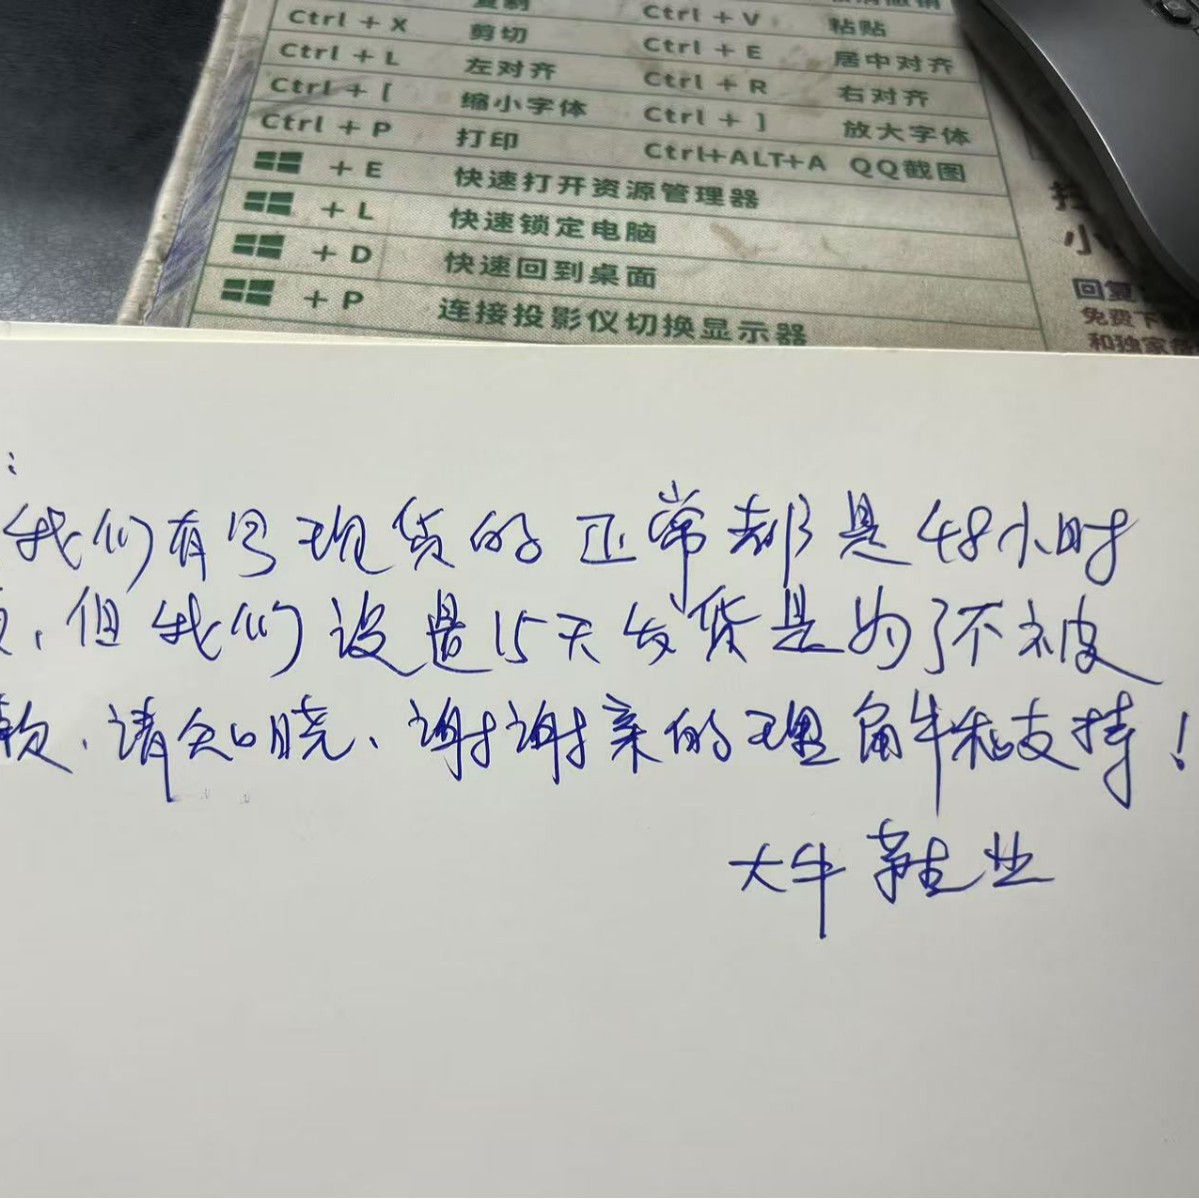 复制 Ctrl + V 粘贴
Ctrl + X 剪切 Ctrl + E 居中对齐
Ctrl + L 左对齐 Ctrl + R 右对齐
Ctrl + [ 缩小字体 Ctrl + ] 放大字体
Ctrl + P 打印 Ctrl+ALT+A QQ截图
+ E 快速打开资源管理器
+ L 快速锁定电脑
+ D 快速回到桌面
+ P 连接投影仪切换显示器
小
回复
免费下
和独家
:
我们有写现货的正常都是48小时
,但我们设置15天发货是为了不被
款,请知晓、谢谢亲的理解和支持!
大牛鞋业